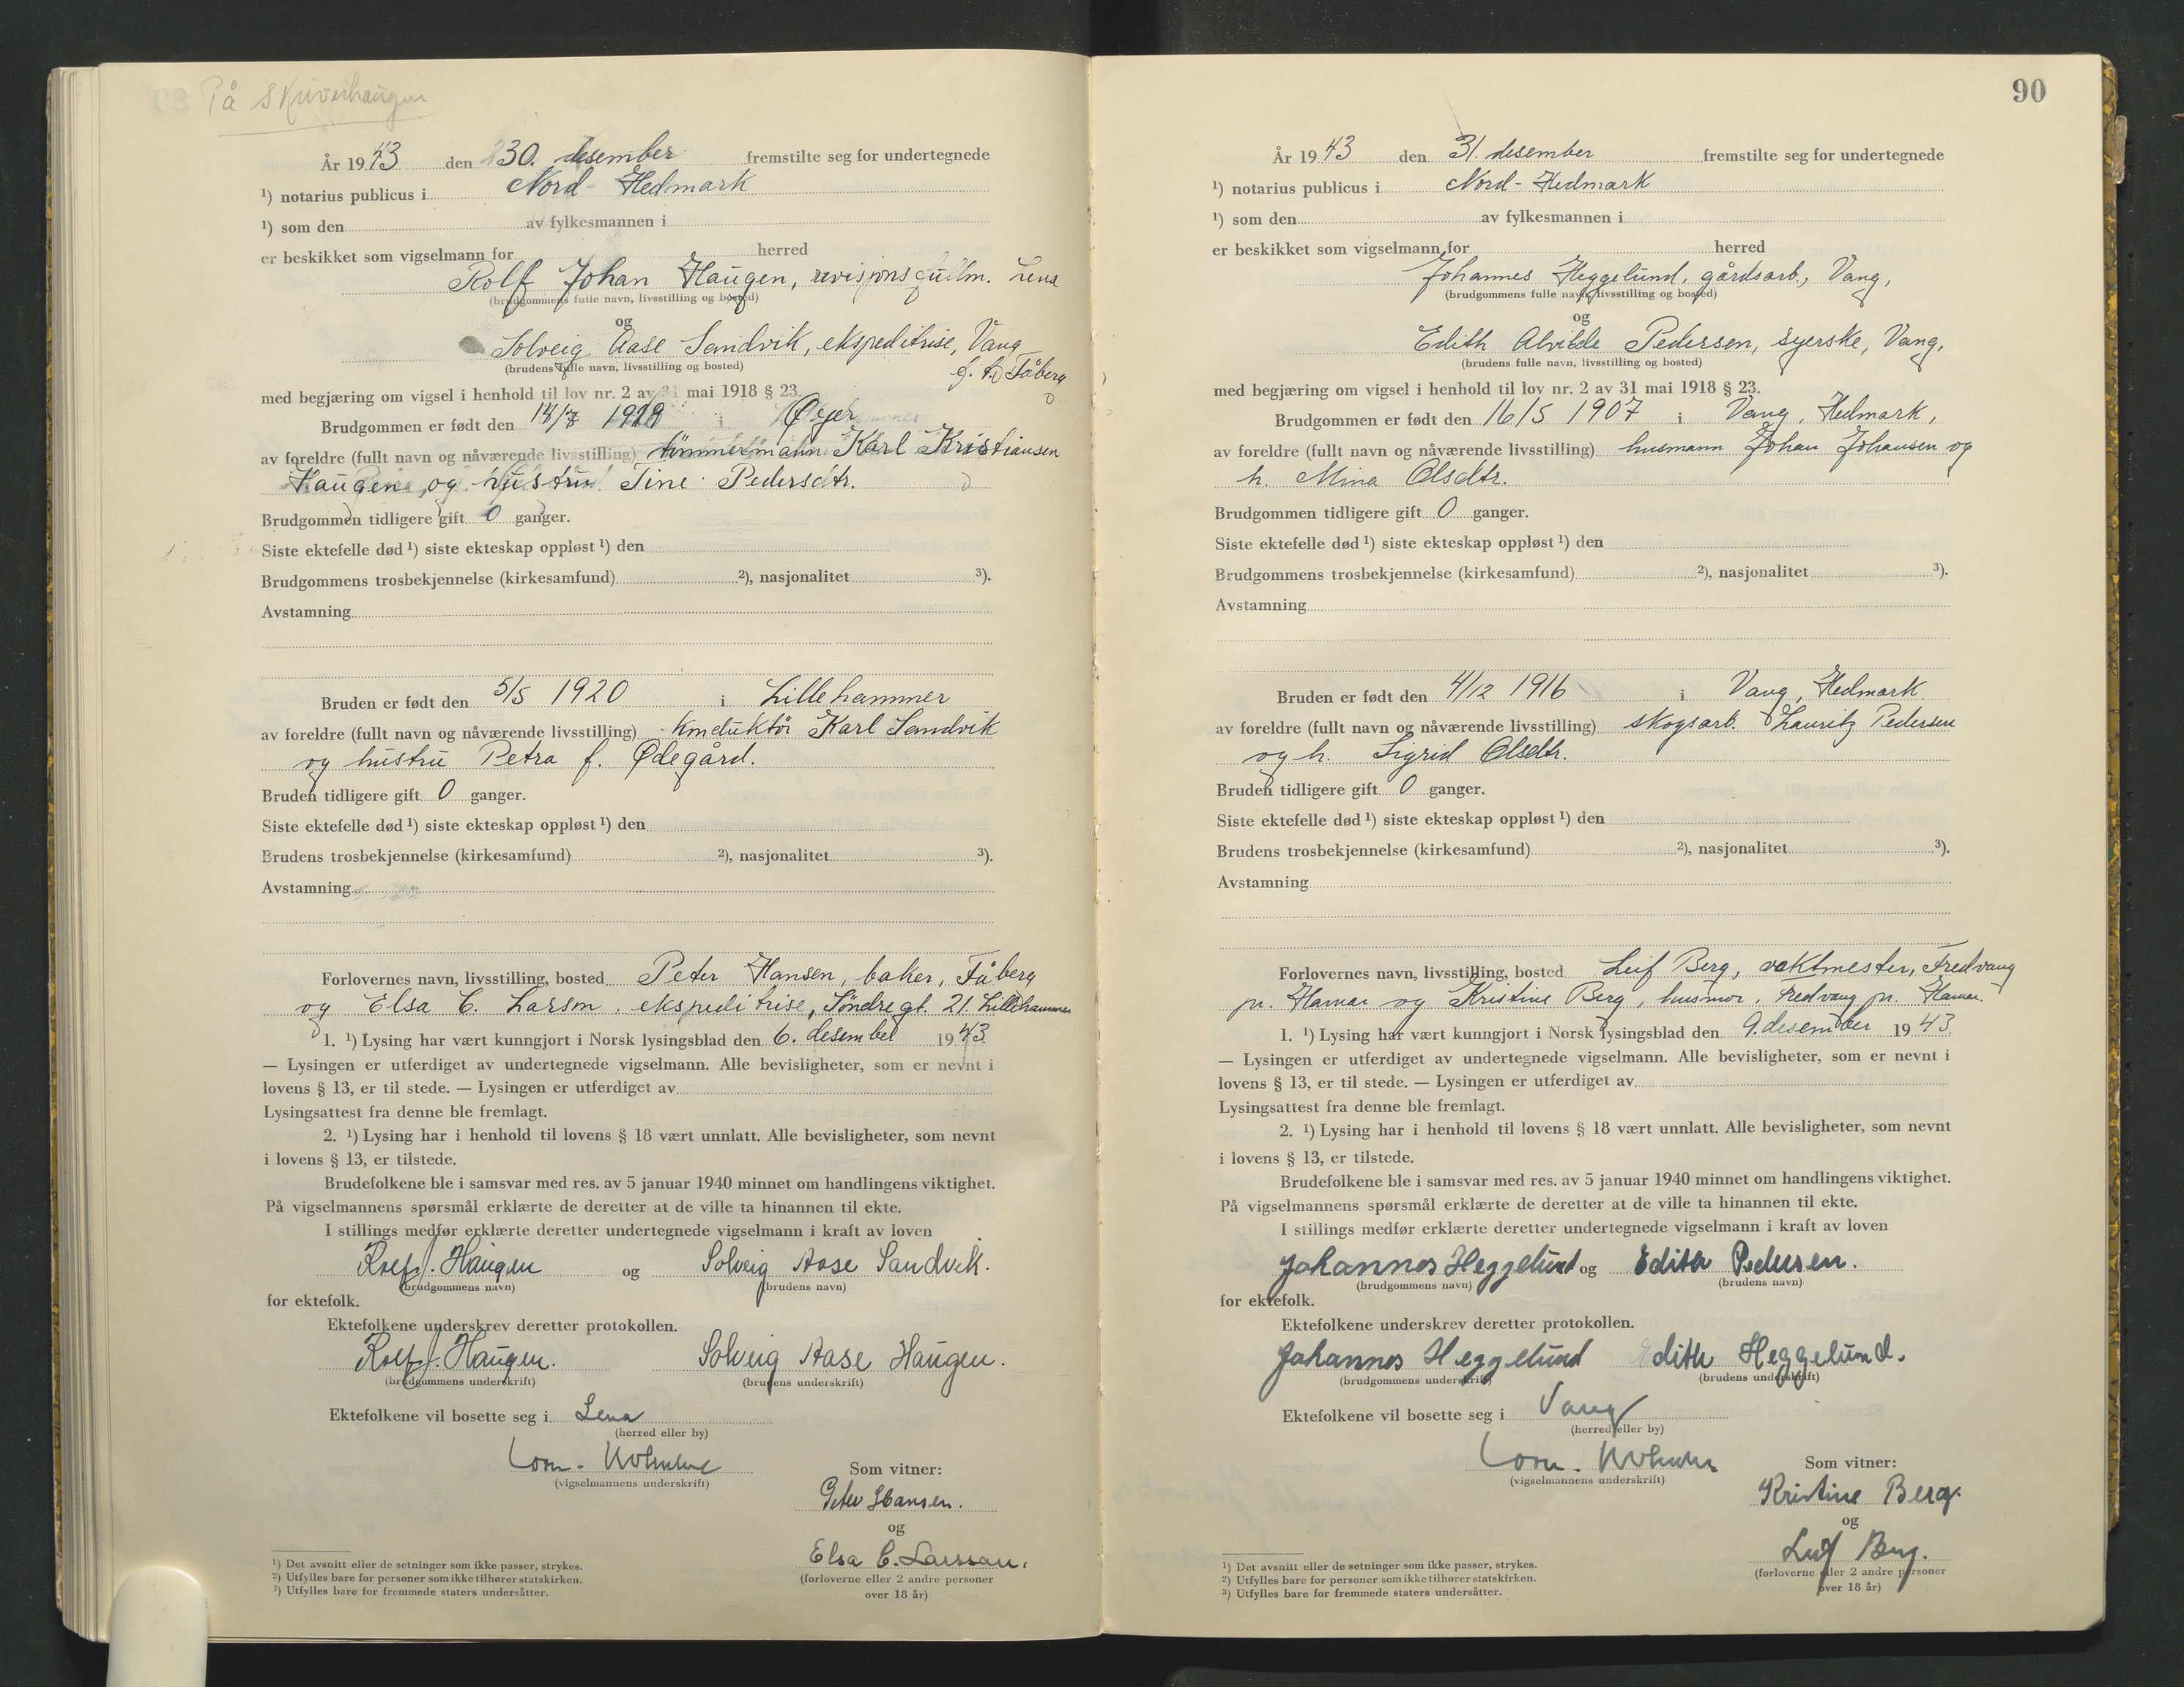 På Skriverhaugen
År 1943 den 30. desember fremstilte seg for undertegnede
¹) notarius publicus i Nord-Hedmark
¹) som den av fylkesmannen i
er beskikket som vigselmann for herred
Rolf Johan Haugen, revisjonsfullm. Lena
(brudgommens fulle navn, livsstilling og bosted)
og
Solveig Aase Sandvik, ekspeditrise, Vang
(brudens fulle navn, livsstilling og bosted)
Fåberg
med begjæring om vigsel i henhold til lov nr. 2 av 31 mai 1918 § 23.
Brudgommen er født den 14/7 1919 i Øyer
av foreldre (fullt navn og nåværende livsstilling) tømmermann Karl Kristiansen
Haugen og hustru Tine Pedersdtr.
Brudgommen tidligere gift 0 ganger.
Siste ektefelle død ¹) siste ekteskap oppløst ¹) den
Brudgommens trosbekjennelse (kirkesamfund) ²), nasjonalitet ³).
Avstamning
Bruden er født den 5/5 1920 i Lillehammer
av foreldre (fullt navn og nåværende livsstilling) konduktør Karl Sandvik
og hustru Petra f. Ødegård.
Bruden tidligere gift 0 ganger.
Siste ektefelle død ¹) siste ekteskap oppløst ¹) den
Brudens trosbekjennelse (kirkesamfund) ²), nasjonalitet ³).
Avstamning
Forlovernes navn, livsstilling, bosted Peter Hansen, baker, Fåberg
og Elsa C. Larson, ekspeditrise, Søndre gt. 21. Lillehammer
1. ¹) Lysing har vært kunngjort i Norsk lysingsblad den 6. desember 1943.
— Lysingen er utferdiget av undertegnede vigselmann. Alle bevisligheter, som er nevnt i
lovens § 13, er til stede. — Lysingen er utferdiget av
Lysingsattest fra denne ble fremlagt.
2. ¹) Lysing har i henhold til lovens § 18 vært unnlatt. Alle bevisligheter, som nevnt
i lovens § 13, er tilstede.
Brudefolkene ble i samsvar med res. av 5 januar 1940 minnet om handlingens viktighet.
På vigselmannens spørsmål erklærte de deretter at de ville ta hinannen til ekte.
I stillings medfør erklærte deretter undertegnede vigselmann i kraft av loven
Rolf J. Haugen og Solveig Aase Sandvik.
(brudgommens navn) (brudens navn)
for ektefolk.
Ektefolkene underskrev deretter protokollen.
Rolf J. Haugen. Solveig Aase Haugen.
(brudgommens underskrift) (brudens underskrift)
Ektefolkene vil bosette seg i Lena
(herred eller by)
(vigselmannens underskrift)
Som vitner:
Peter Hansen.
og
Elsa C. Larsson.
(forloverne eller 2 andre personer
over 18 år)
¹) Det avsnitt eller de setninger som ikke passer, strykes.
²) Utfylles bare for personer som ikke tilhører statskirken.
³) Utfylles bare for fremmede staters undersåtter.
90
År 1943 den 31. desember fremstilte seg for undertegnede
¹) notarius publicus i Nord-Hedmark
¹) som den av fylkesmannen i
er beskikket som vigselmann for herred
Johannes Heggelund, gårdsarb., Vang,
(brudgommens fulle navn, livsstilling og bosted)
og
Edith Alvilde Pedersen, syerske, Vang,
(brudens fulle navn, livsstilling og bosted)
med begjæring om vigsel i henhold til lov nr. 2 av 31 mai 1918 § 23.
Brudgommen er født den 16/5 1907 i Vang, Hedmark,
av foreldre (fullt navn og nåværende livsstilling) husmann Johan Johansen og
h. Mina Olsdtr.
Brudgommen tidligere gift 0 ganger.
Siste ektefelle død ¹) siste ekteskap oppløst ¹) den
Brudgommens trosbekjennelse (kirkesamfund) ²), nasjonalitet ³).
Avstamning
Bruden er født den 4/12 1916 i Vang, Hedmark
av foreldre (fullt navn og nåværende livsstilling) skogsarb. Lauritz Pedersen
og h. Sigrid Olsdtr.
Bruden tidligere gift 0 ganger.
Siste ektefelle død ¹) siste ekteskap oppløst ¹) den
Brudens trosbekjennelse (kirkesamfund) ²), nasjonalitet ³).
Avstamning
Forlovernes navn, livsstilling, bosted Leif Berg, vaktmester, Fredvang
pr. Hamar og Kristine Berg, husmor, Fredvang pr. Hamar.
1. ¹) Lysing har vært kunngjort i Norsk lysingsblad den 9. desember 1943
— Lysingen er utferdiget av undertegnede vigselmann. Alle bevisligheter, som er nevnt i
lovens § 13, er til stede. — Lysingen er utferdiget av
Lysingsattest fra denne ble fremlagt.
2. ¹) Lysing har i henhold til lovens § 18 vært unnlatt. Alle bevisligheter, som nevnt
i lovens § 13, er tilstede.
Brudefolkene ble i samsvar med res. av 5 januar 1940 minnet om handlingens viktighet.
På vigselmannens spørsmål erklærte de deretter at de ville ta hinannen til ekte.
I stillings medfør erklærte deretter undertegnede vigselmann i kraft av loven
Johannes Heggelund og Edith Pedersen.
(brudgommens navn) (brudens navn)
for ektefolk.
Ektefolkene underskrev deretter protokollen.
Johannes Heggelund Edith Heggelund.
(brudgommens underskrift) (brudens underskrift)
Ektefolkene vil bosette seg i Vang
(herred eller by)
(vigselmannens underskrift)
Som vitner:
Kristine Berg.
og
Leif Berg.
(forloverne eller 2 andre personer
over 18 år)
¹) Det avsnitt eller de setninger som ikke passer, strykes.
²) Utfylles bare for personer som ikke tilhører statskirken.
³) Utfylles bare for fremmede staters undersåtter.